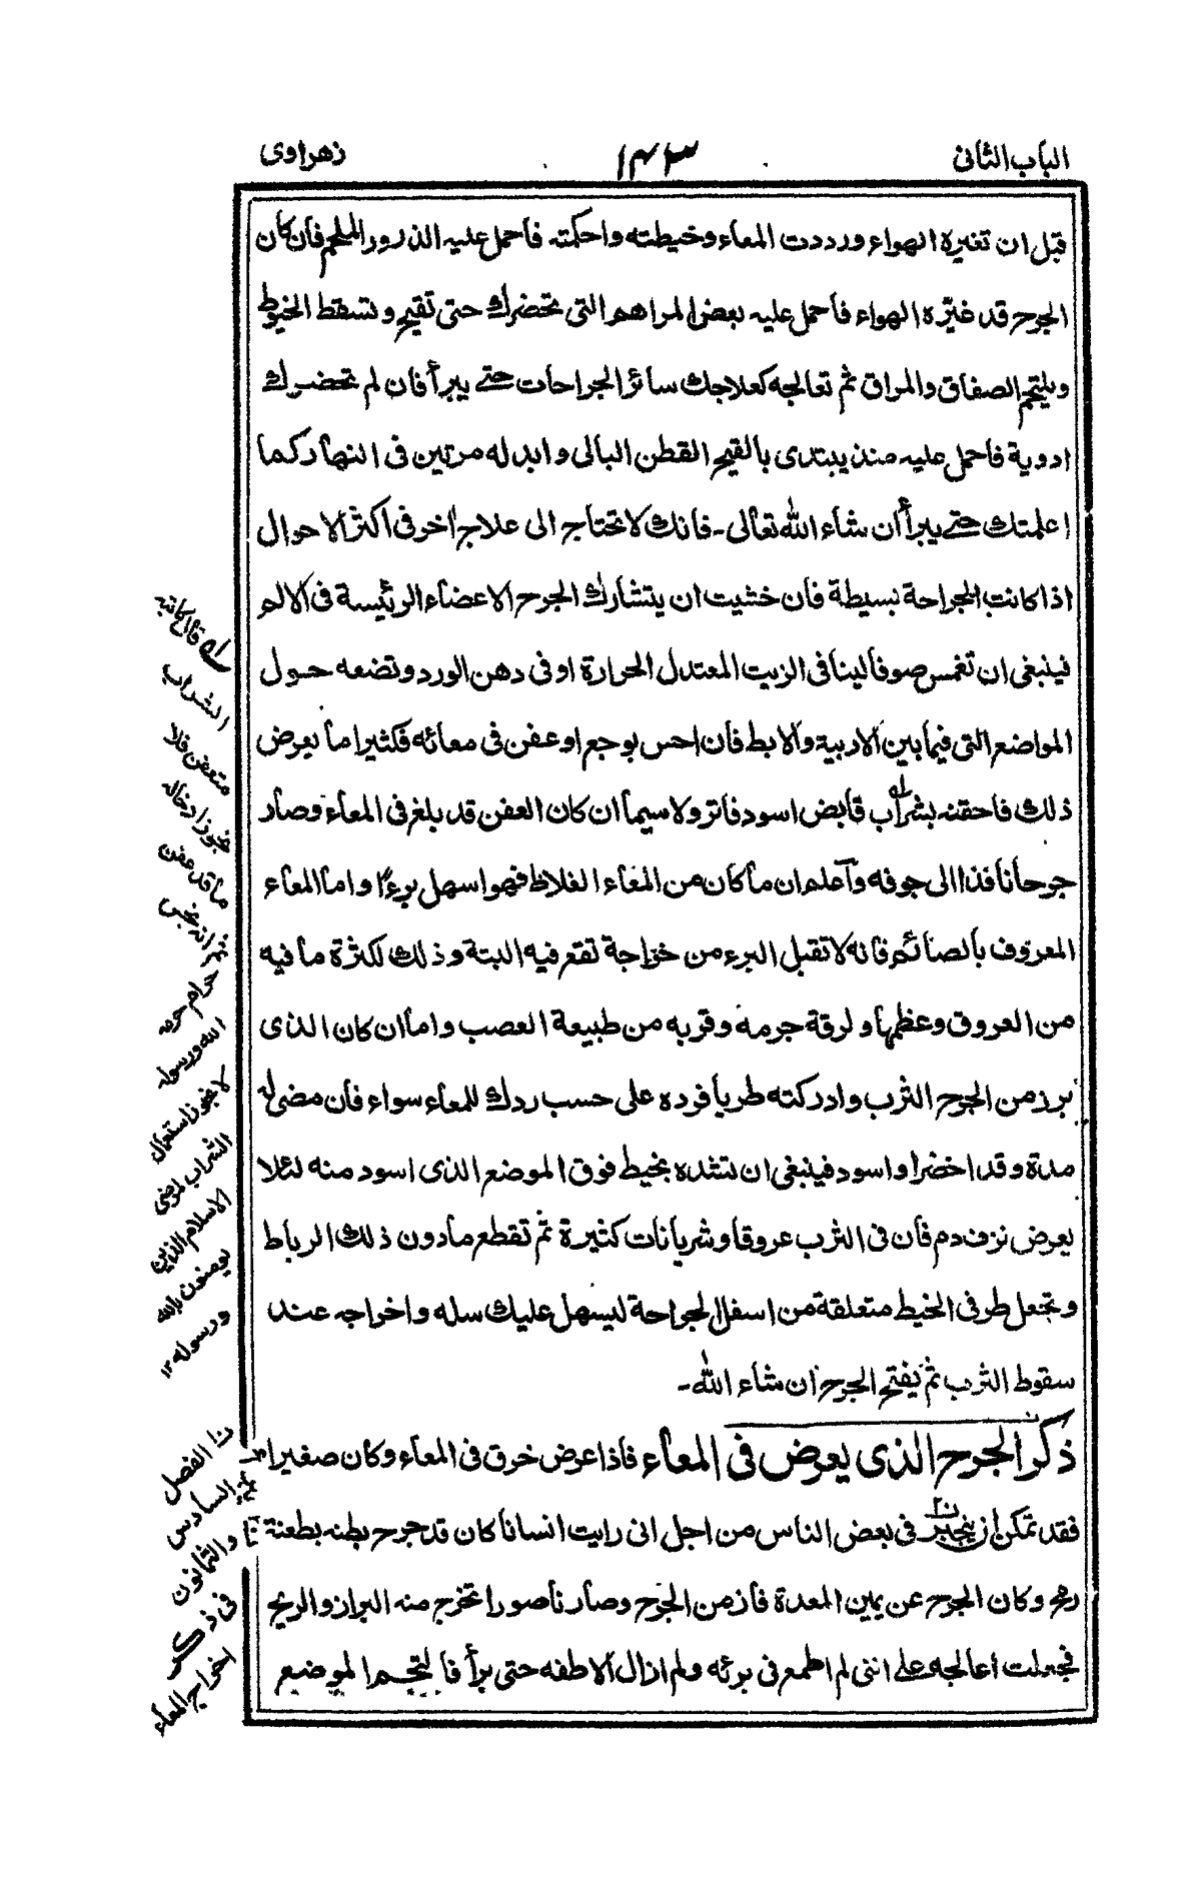 الباب الثانى
١٤٣
زهراوى
قبل ان تغيره الهواء ورددت المعاء وخيطته واحكمته فأحمل عليه الذرور الملحم فأن كأن
الجرح قد غيّره الهواء فأحمل عليه بعض المراهم التى تحضرك حتى تقيح وتسقط الخيوط
ويلتحم الصفاق والمراق ثم تعالجه كعلاجك سائر الجراحات حتے يبرأ فان لم تحضرك
ادوية فاحمل عليه منذ يبتدى بالقيح القطن البالى وابدله مرتين فى النهأر كمأ
اعلمتك حتے يبرأ أن شأء الله تعألى۔ فأنك لا تحتاج الى علاج أخر فى اكثر الاحوال
اذا كانت الجراحة بسيطة فأن خشيت ان يتشارك الجرح الاعضاء الرئيسة فى الالم
فينبغى ان تغمس صوفا لينا فى الزيت المعتدل الحرارة او فى دهن الورد وتضعه حول
المواضع التى فيما بين الاربية والابط فأن احس بوجع او عفن فى معائه فكثيرا مأ يعرض
ذلك فاحقنه بشراب قأبض اسود فاتر ولا سيما ان كأن العفن قد بلغ فى المعاء وصأر
جرحأ نأفذا الى جوفه وأعلم ان مأ كأن من المعاء الغلاظ فهو اسهل برءًا واما المعاء
المعروف بألصائم فانه لا تقبل البرء من خراجة تقع فيه البتة وذلك لكثرة مأ فيه
من العروق وعظمها ولرقة جرمه وقربه من طبيعة العصب واما ان كان الذى
برز من الجرح الثرب وادركته طريأ فرده على حسب ردك للمعاء سواء فأن مضى له
مدة وقد اخضر او اسود فينبغى ان تشده بخيط فوق الموضع الذى اسود منه لئلا
يعرض نزف دم فأن فى الثرب عروقا وشريأنات كثيرة ثم تقطع مأ دون ذلك الرباط
وتجعل طرفى الخيط متعلقة من اسفل الجراحة ليسهل عليك سله واخراجه عند
سقوط الثرب ثم يفتح الجرح ان شاء الله۔
ذكر الجرح الذى يعرض فى المعأء فأذا عرض خرق فى المعأء وكان صغيرا
فقد تمكن ان ينجبر فى بعض الناس من اجل انى رايت انسانا كان قد جرح بطنه بطعنة
رمح وكان الجرح عن يمين المعدة فازمن الجرح وصأر نأصورا تخرج منه البراز والريح
فجعلت اعالجه على اننى لم اطمع فى برئه ولم ازال الاطفه حتى برأ فالتحم الموضع
له قال كاتبه
الشراب
متعفن فلا
يجوز ادخاله
مأ قد عفن
ثم انه نجس
حرام حرمه
الله ورسوله
لا يجوز استعمال
الشراب لمرضى
الاسلام الذين
يومنون بالله
ورسوله ١٢
الفصل
السأدس
والثمأنون
فى ذكر
اخراج المعأء